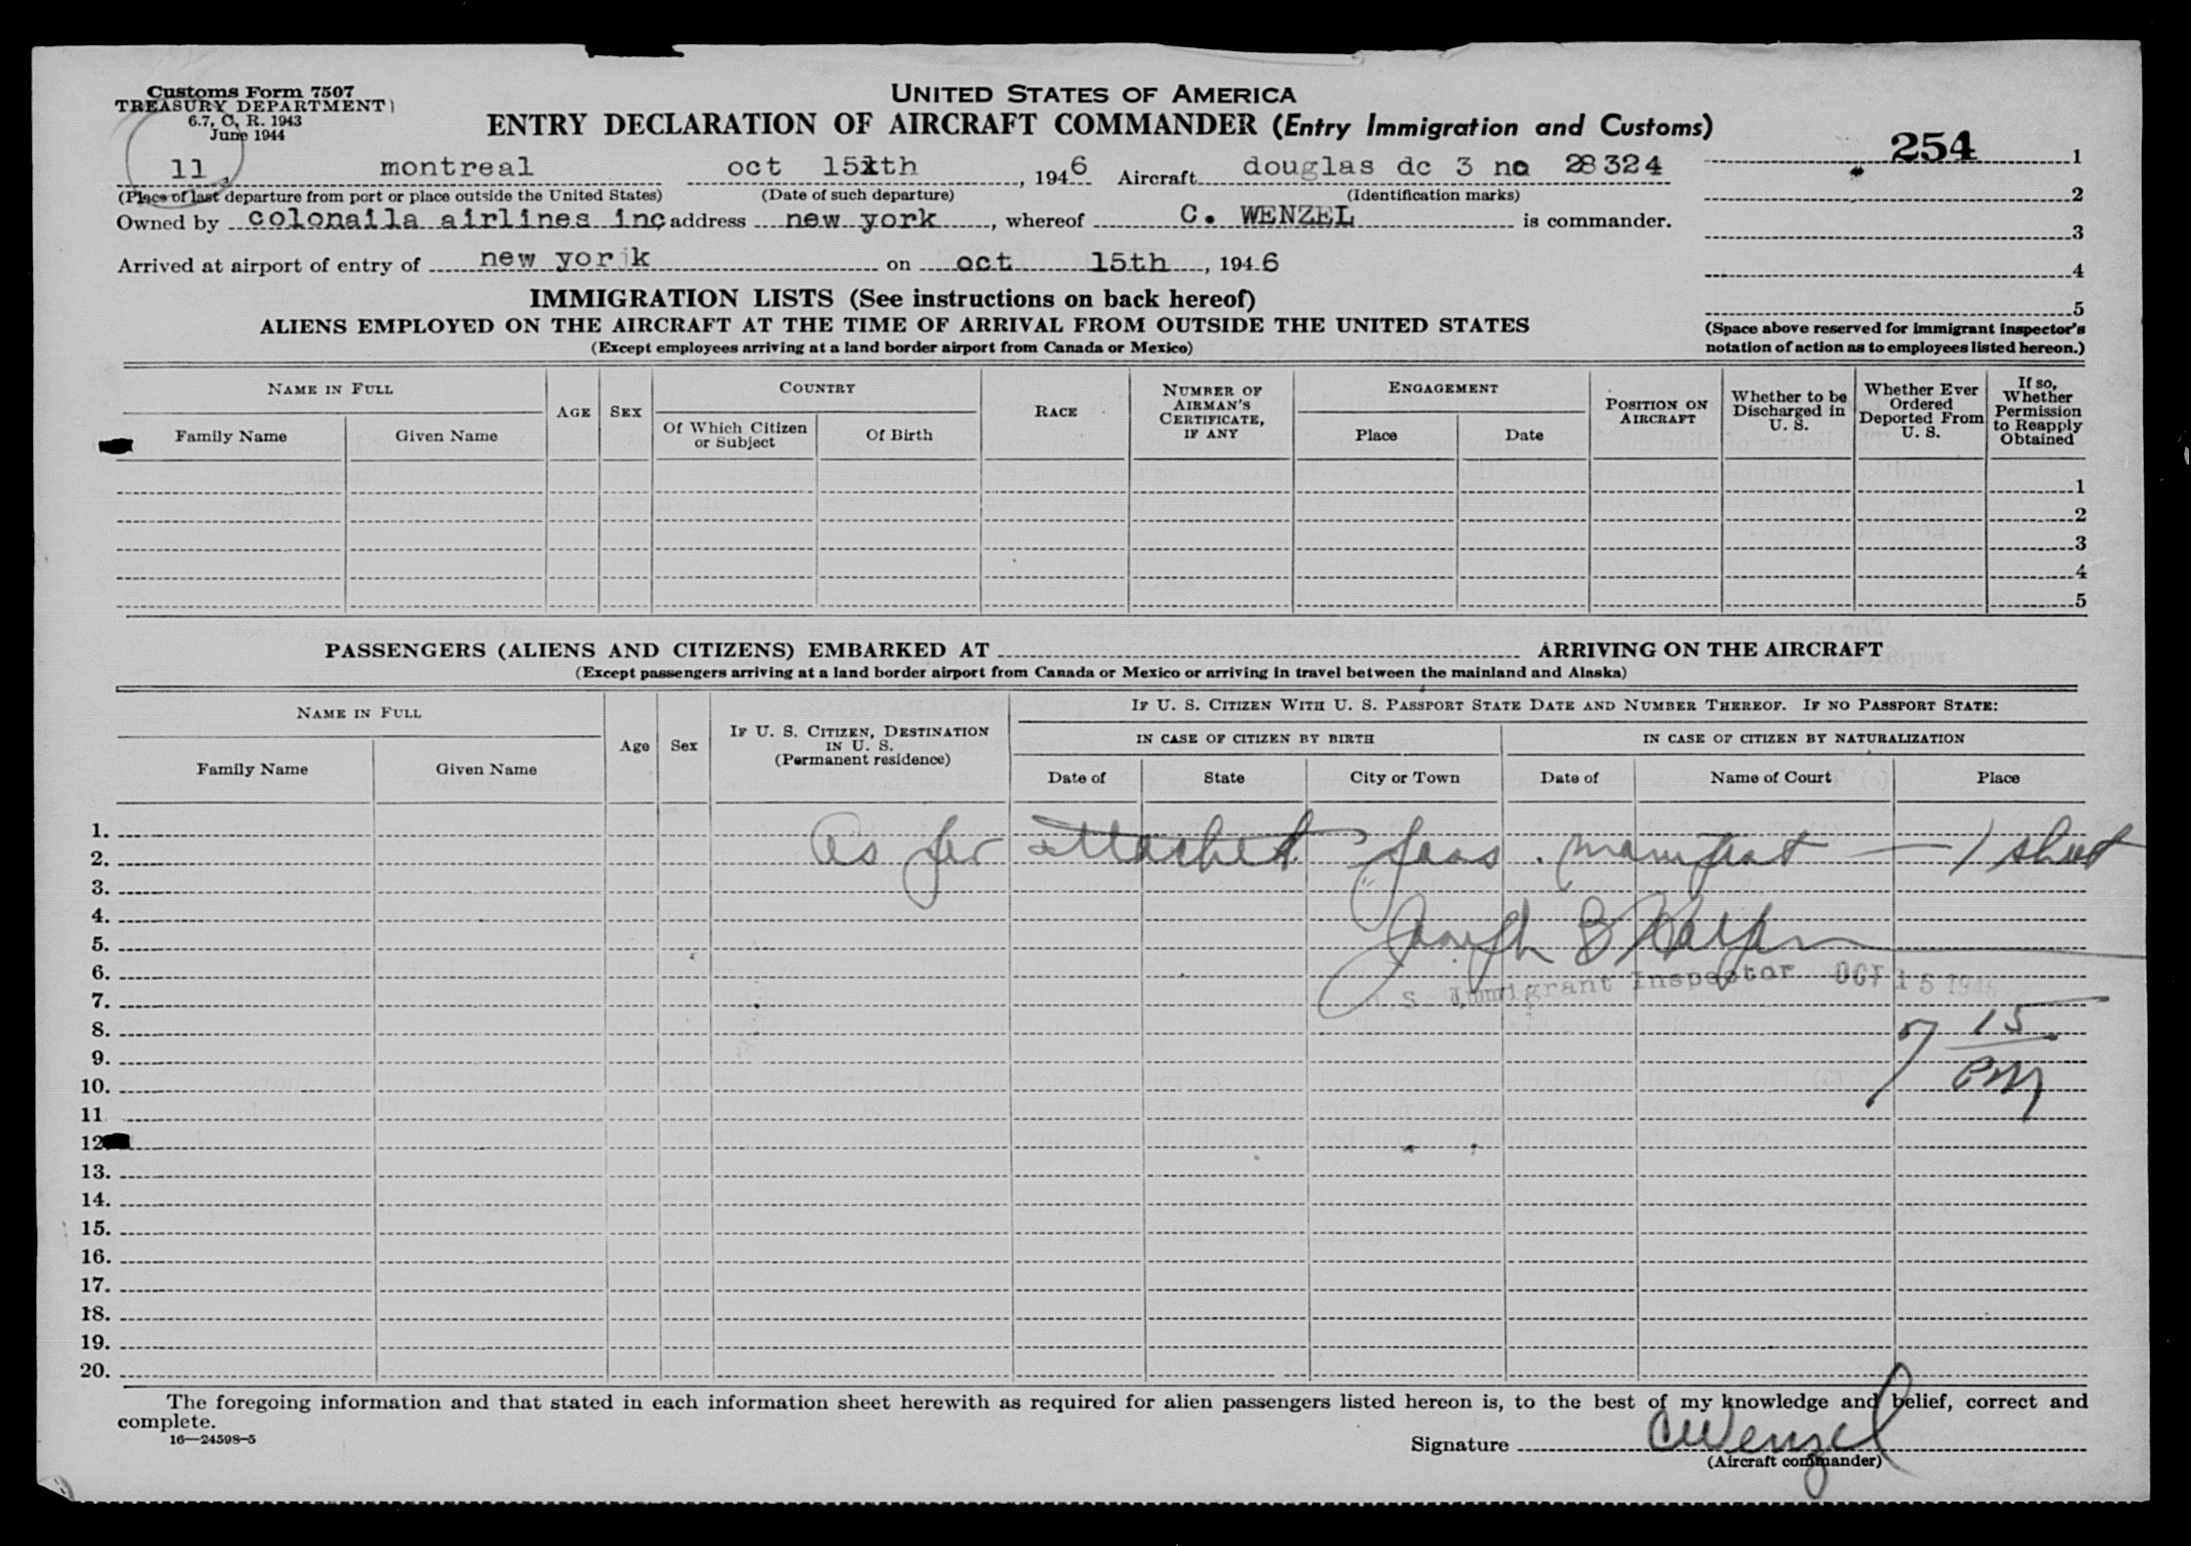 Customs Form 7507
TREASURY DEPARTMENT
6.7, C. R. 1943
June 1944
UNITED STATES OF AMERICA
ENTRY DECLARATION OF AIRCRAFT COMMANDER (Entry Immigration and Customs)
254 1
11 montreal oct 15th, 1946 Aircraft douglas dc 3 no 28324
(Place of last departure from port or place outside the United States) (Date of such departure) (Identification marks)
2
Owned by colonaila airlines inc address new york, whereof C. WENZEL is commander.
3
Arrived at airport of entry of new york on oct 15th, 1946
4
IMMIGRATION LISTS (See instructions on back hereof)
5
ALIENS EMPLOYED ON THE AIRCRAFT AT THE TIME OF ARRIVAL FROM OUTSIDE THE UNITED STATES
(Except employees arriving at a land border airport from Canada or Mexico)
(Space above reserved for immigrant inspector's
notation of action as to employees listed hereon.)
NAME IN FULL
Family Name Given Name
AGE
SEX
COUNTRY
Of Which Citizen or Subject
Of Birth
RACE
NUMBER OF AIRMAN'S CERTIFICATE, IF ANY
ENGAGEMENT
Place Date
POSITION ON AIRCRAFT
Whether to be Discharged in U. S.
Whether Ever Ordered Deported From U. S.
If so, Whether Permission to Reapply Obtained
1
2
3
4
5
PASSENGERS (ALIENS AND CITIZENS) EMBARKED AT ARRIVING ON THE AIRCRAFT
(Except passengers arriving at a land border airport from Canada or Mexico or arriving in travel between the mainland and Alaska)
NAME IN FULL
Family Name Given Name
Age
Sex
IF U. S. CITIZEN, DESTINATION IN U. S.
(Permanent residence)
IF U. S. CITIZEN WITH U. S. PASSPORT STATE DATE AND NUMBER THEREOF. IF NO PASSPORT STATE:
IN CASE OF CITIZEN BY BIRTH IN CASE OF CITIZEN BY NATURALIZATION
Date of State City or Town Date of Name of Court Place
1.
2. As per attached pass. manifest — 1 sheet
3.
4.
5. Joseph B Halpern
6.
7. S Immigrant Inspector OCT 15 1946
8. 7 15
9.
10. PM
11
12
13.
14.
15.
16.
17.
18.
19.
20.
The foregoing information and that stated in each information sheet herewith as required for alien passengers listed hereon is, to the best of my knowledge and belief, correct and
complete.
16—24598-5
Signature CWenzel
(Aircraft commander)